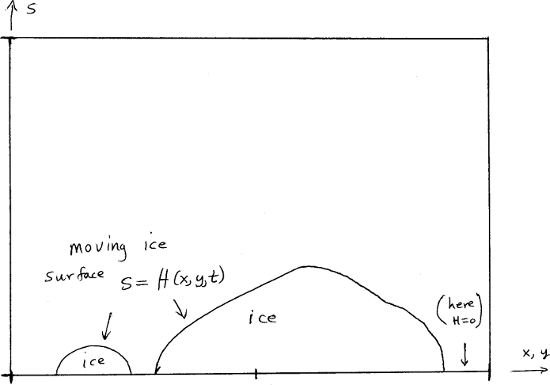 s
moving ice
surface s = H(x,y,t)
ice
ice
(here
H=0)
x, y